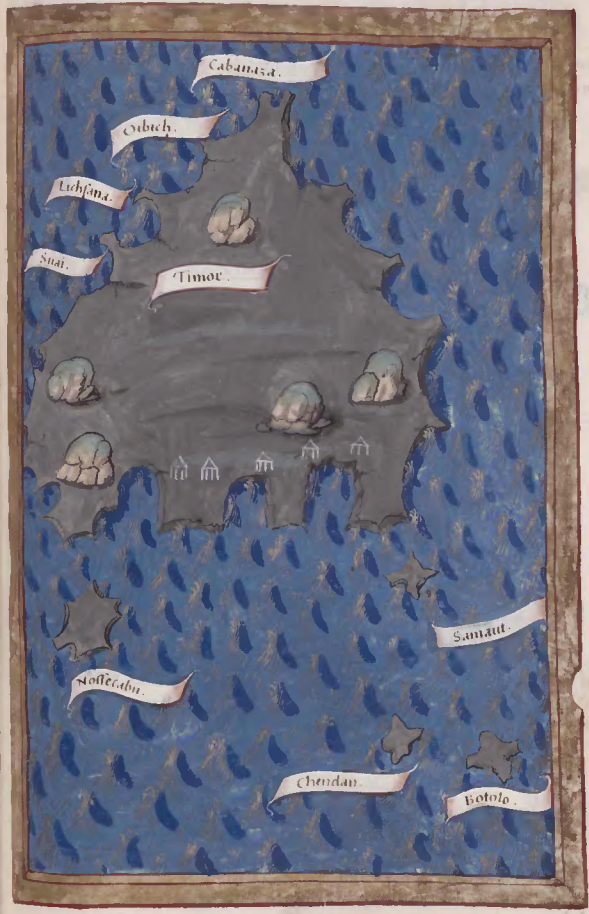 Cabanaza.
Oibich.
Lichsana.
Suai.
Timor.
Samaut.
Nossecabu.
Chendan.
Botolo.